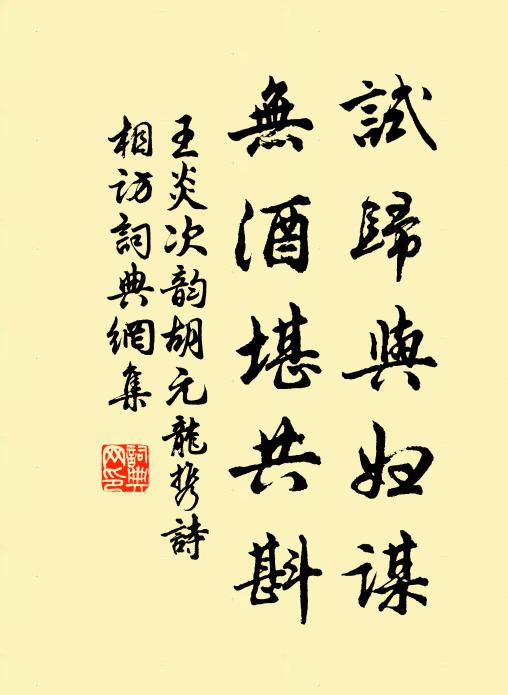 試歸與婦謀
無酒堪共斟
王炎次韵胡元龍携詩
相訪詞典網集
詞典網印